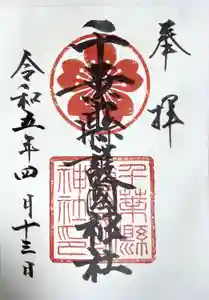 奉拝
千葉縣護國神社
千葉縣
神社印
令和五年四月十三日